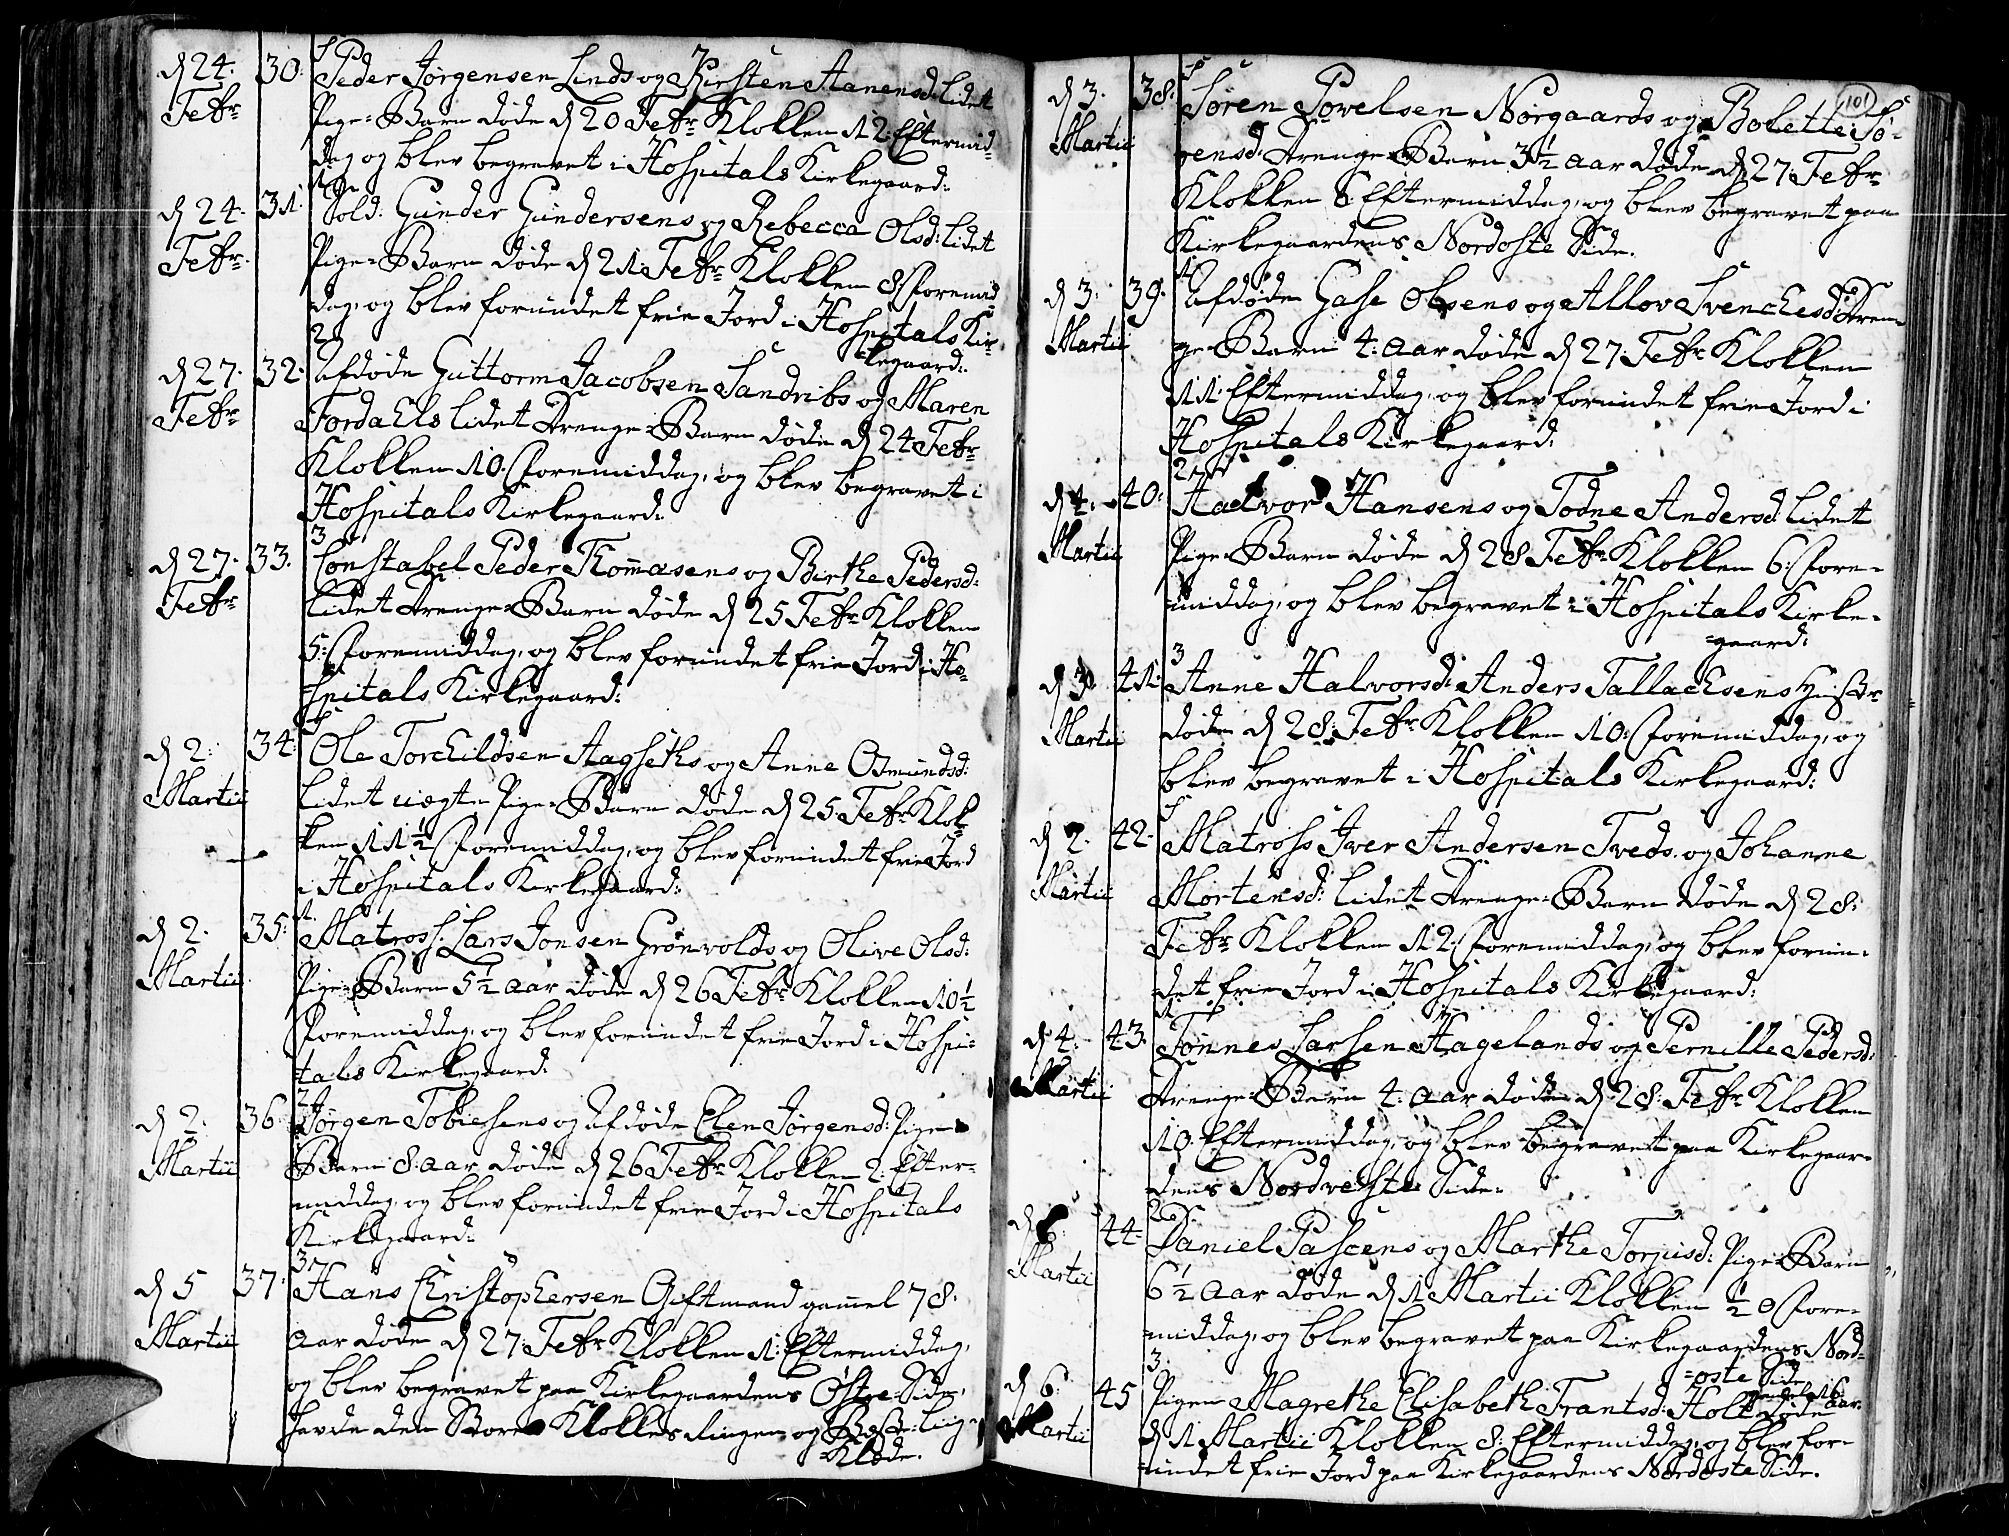 d 24. 30. Peder Jørgensen Linds og Kirsten Aanensd: lidet
Febr Pige-Barn døde d 20 Febr Klokken 12. Eftermid-
dag og blev begravet i Hospitals Kirkegaard:
1
d 24. 31. Sold: Gunder Gundersens og Rebecca Olsd: lidet
Febr. Pige-Barn døde d 21. Febr Klokken 8 Foremid
dag, og blev forundet frie Jord i Hospitals Kir-
=kegaard:
2
d 27. 32. Afdøde Guttorm Jacobsen Sandribs og Maren
Febr Tordaels lidet Drenge-Barn døde d 24 Febr
Klokken 10. Foremiddag, og blev begravet i
Hospitals Kirkegaard:
3
d 27. 33. Constabel Peder Thomasens og Birthe Pedersd:
Febr lidet Drenge-Barn døde d 25 Febr Klokken
5: Foremiddag, og blev forundet frie Jord i Ho-
spitals Kirkegaard:
d 2. 34. Ole Torchildsen Aagseths og Anne Osmundsd:
Martii lidet uægte Pige-Barn døde d 25. Febr Klok-
ken 11½ Foremiddag, og blev forundet frie Jord
i Hospitals Kirkegaard:
1.
d 2. 35. Matross Lars Jonsen Grønvolds og Olive Olsd:
Martii Pige-Barn 5½ aar døde d 26 Febr Klokken 10½
Foremiddag, og blev forundet frie Jord i Hospi-
tals Kirkegaard:
2
d 2. 36. Jørgen Tobiesens og Afdøde Elen Jørgensd: Pige-
Martii Barn 8. aar døde d 26 Febr Klokken 2. Efter-
middag, og blev forundet frie Jord i Hospitals
Kirkegaard:
3
d 5 37. Hans Christophersen Giftmand gamel 78.
Martii aar døde d 27. Febr Klokken 1. Eftermiddag,
og blev begravet paa Kirkegaardens Østre Side,
havde den Store Klokkes Ringen og Liig-
=Klæde.
101
d 3. 38. Søren Povelsen Nørgaards og Bolette Sø-
Martii rensd: Drenge-Barn 3½ aar døde d 27. Febr
Klokken 8 Eftermiddag, og blev begravet paa
Kirkegaardens Nordoste Side.
1
d 3. 39. Afdøde Gase Olsens og Allov Svenchesd: Dren-
Martii ge-Barn 4. aar døde d 27. Febr Klokken
11. Eftermiddag, og blev forundet frie Jord i
Hospitals Kirkegaard:
2
d 4. 40. Halvor Hansens og Todne Andersd: lidet
Martii Pige-Barn døde d 28 Febr Klokken 6. Fore-
middag, og blev begravet i Hospitals Kirke-
=gaard:
3
d 3. 41. Anne Halvorsd: Anders Tallachsens Hustr
Martii døde d 28. Febr Klokken 10. Foremiddag, og
blev begravet i Hospitals Kirkegaard:
d 2. 42. Matross Iver Andersen Tveds. og Johanne
Martii Mortensd: lidet Drenge-Barn døde d 28:
Febr Klokken 12. Foremiddag, og blev forun-
det frie Jord i Hospitals Kirkegaard:
1
d 4. 43. Tønnes Larsen Hagelands og Pernille Pedersd:
Martii Drenge-Barn 4. aar døde d 28. Febr Klokken
10. Eftermiddag, og blev begravet paa Kirkegaar-
dens Nordveste Side.
2
d 6. 44. Daniel Pascens og Marthe Torjusd: Pige-Barn
Martii 6½ aar døde d 1 Martii Klokken ½ 0 Fore-
middag, og blev begravet paa Kirkegaardens Nord-
=oste Side
3.
d 6. 45 Pigen Magrethe Elisabeth Frantsd: Holt gamel 16 aar. døde
Martii d 1 Martii Klokken 8. Eftermiddag, og blev for-
undet frie Jord paa Kirkegaardens Nordoste Side.